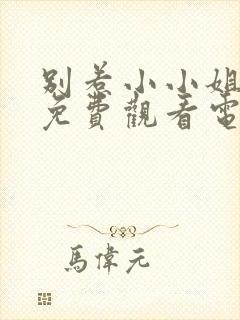 别惹小小姐
免費觀看電
馬偉元